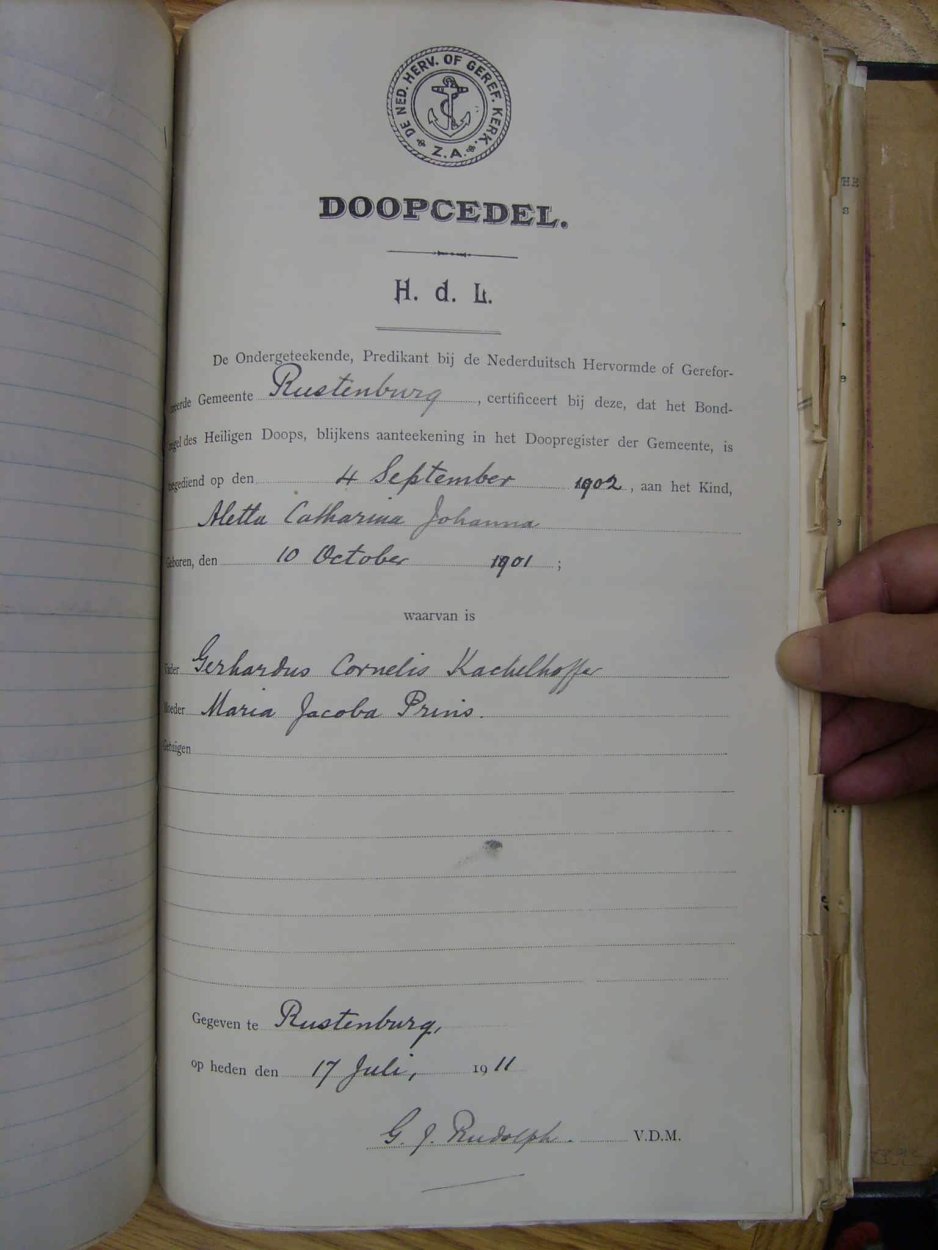 DE NED. HERV. OF GEREF. KERK.
Z.A.
DOOPCEDEL.
H. d. L.
De Ondergeteekende, Predikant bij de Nederduitsch Hervormde of Gerefor-
meerde Gemeente Rustenburg, certificeert bij deze, dat het Bond-
zegel des Heiligen Doops, blijkens aanteekening in het Doopregister der Gemeente, is
toegediend op den 4 September 1902, aan het Kind,
Aletta Catharina Johanna
Geboren, den 10 October 1901;
waarvan is
Vader Gerhardus Cornelis Kachelhoffer
Moeder Maria Jacoba Prins.
Getuigen
Gegeven te Rustenburg,
op heden den 17 Juli, 1911
G. J. Rudolph. V.D.M.